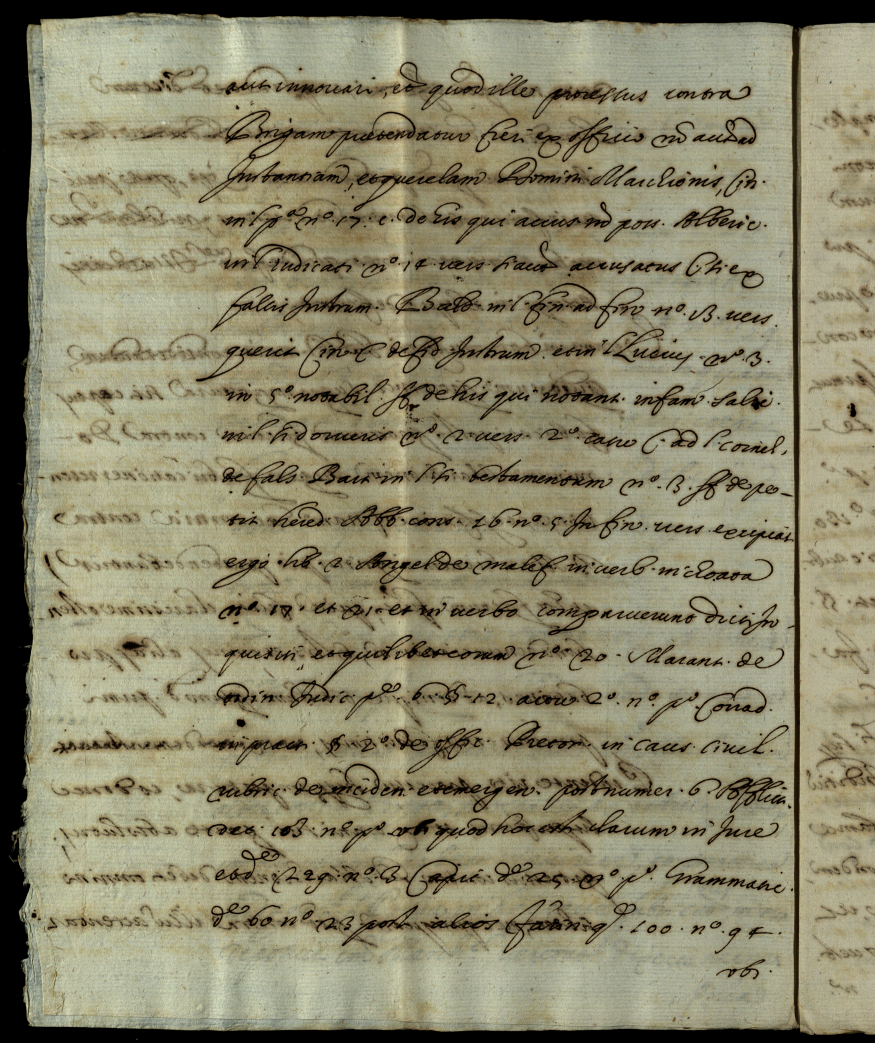 aut innouari, et quod ille processus contra
Brigam pretendatur fieri ex officio nõ aut ad
Instantiam, et querelam Domini Marchionis, Cin.
in l. pª nº. 17. c. de his qui accus. nõ poss. Alberic.
in l. iudicati nº. 14 vers. accusatus C. si ex
falsis Instrum. Bald. in l. fin. ad fin. nº. 13. vers.
querit Cin. C. de fid. Instrum. et in l. Lucius nº. 3.
in 5º. notabil. ff. de his qui notant. infam. Salic.
in l. si doneris nº. 2. vers. 2º. casu C. ad l. cornel.
de fals. Bart. in l. si testamentum nº. 3. ff. de pe-
tit. hered. Abb. cons. 16. nº. 5. in fin. vers. excipiat
ergo lib. 2. Angel. de malef. in verb.
nº. 17. et 21. et in verbo comparuerunt dicti In-
quisiti, et quilibet eorum nº. 20. Marant. de
ordin. Iudic. pª. 6. § 12. 2º. nº. pº. Conrad.
in pract. § 2º. de offic. Pretor. in caus. ciuil.
rubric. de inciden. et emergen. post numer. 6. Afflict.
dec. 163. nº. pº. ubi quod hoc est clarum in Iure
et dᵉ. 229. nº. 3. Capic. dᵉ. 25. nº. pº. Grammatic.
dᵉ. 60. nº. 23. post alios Farin. q. 100. nº. 94.
ubi.